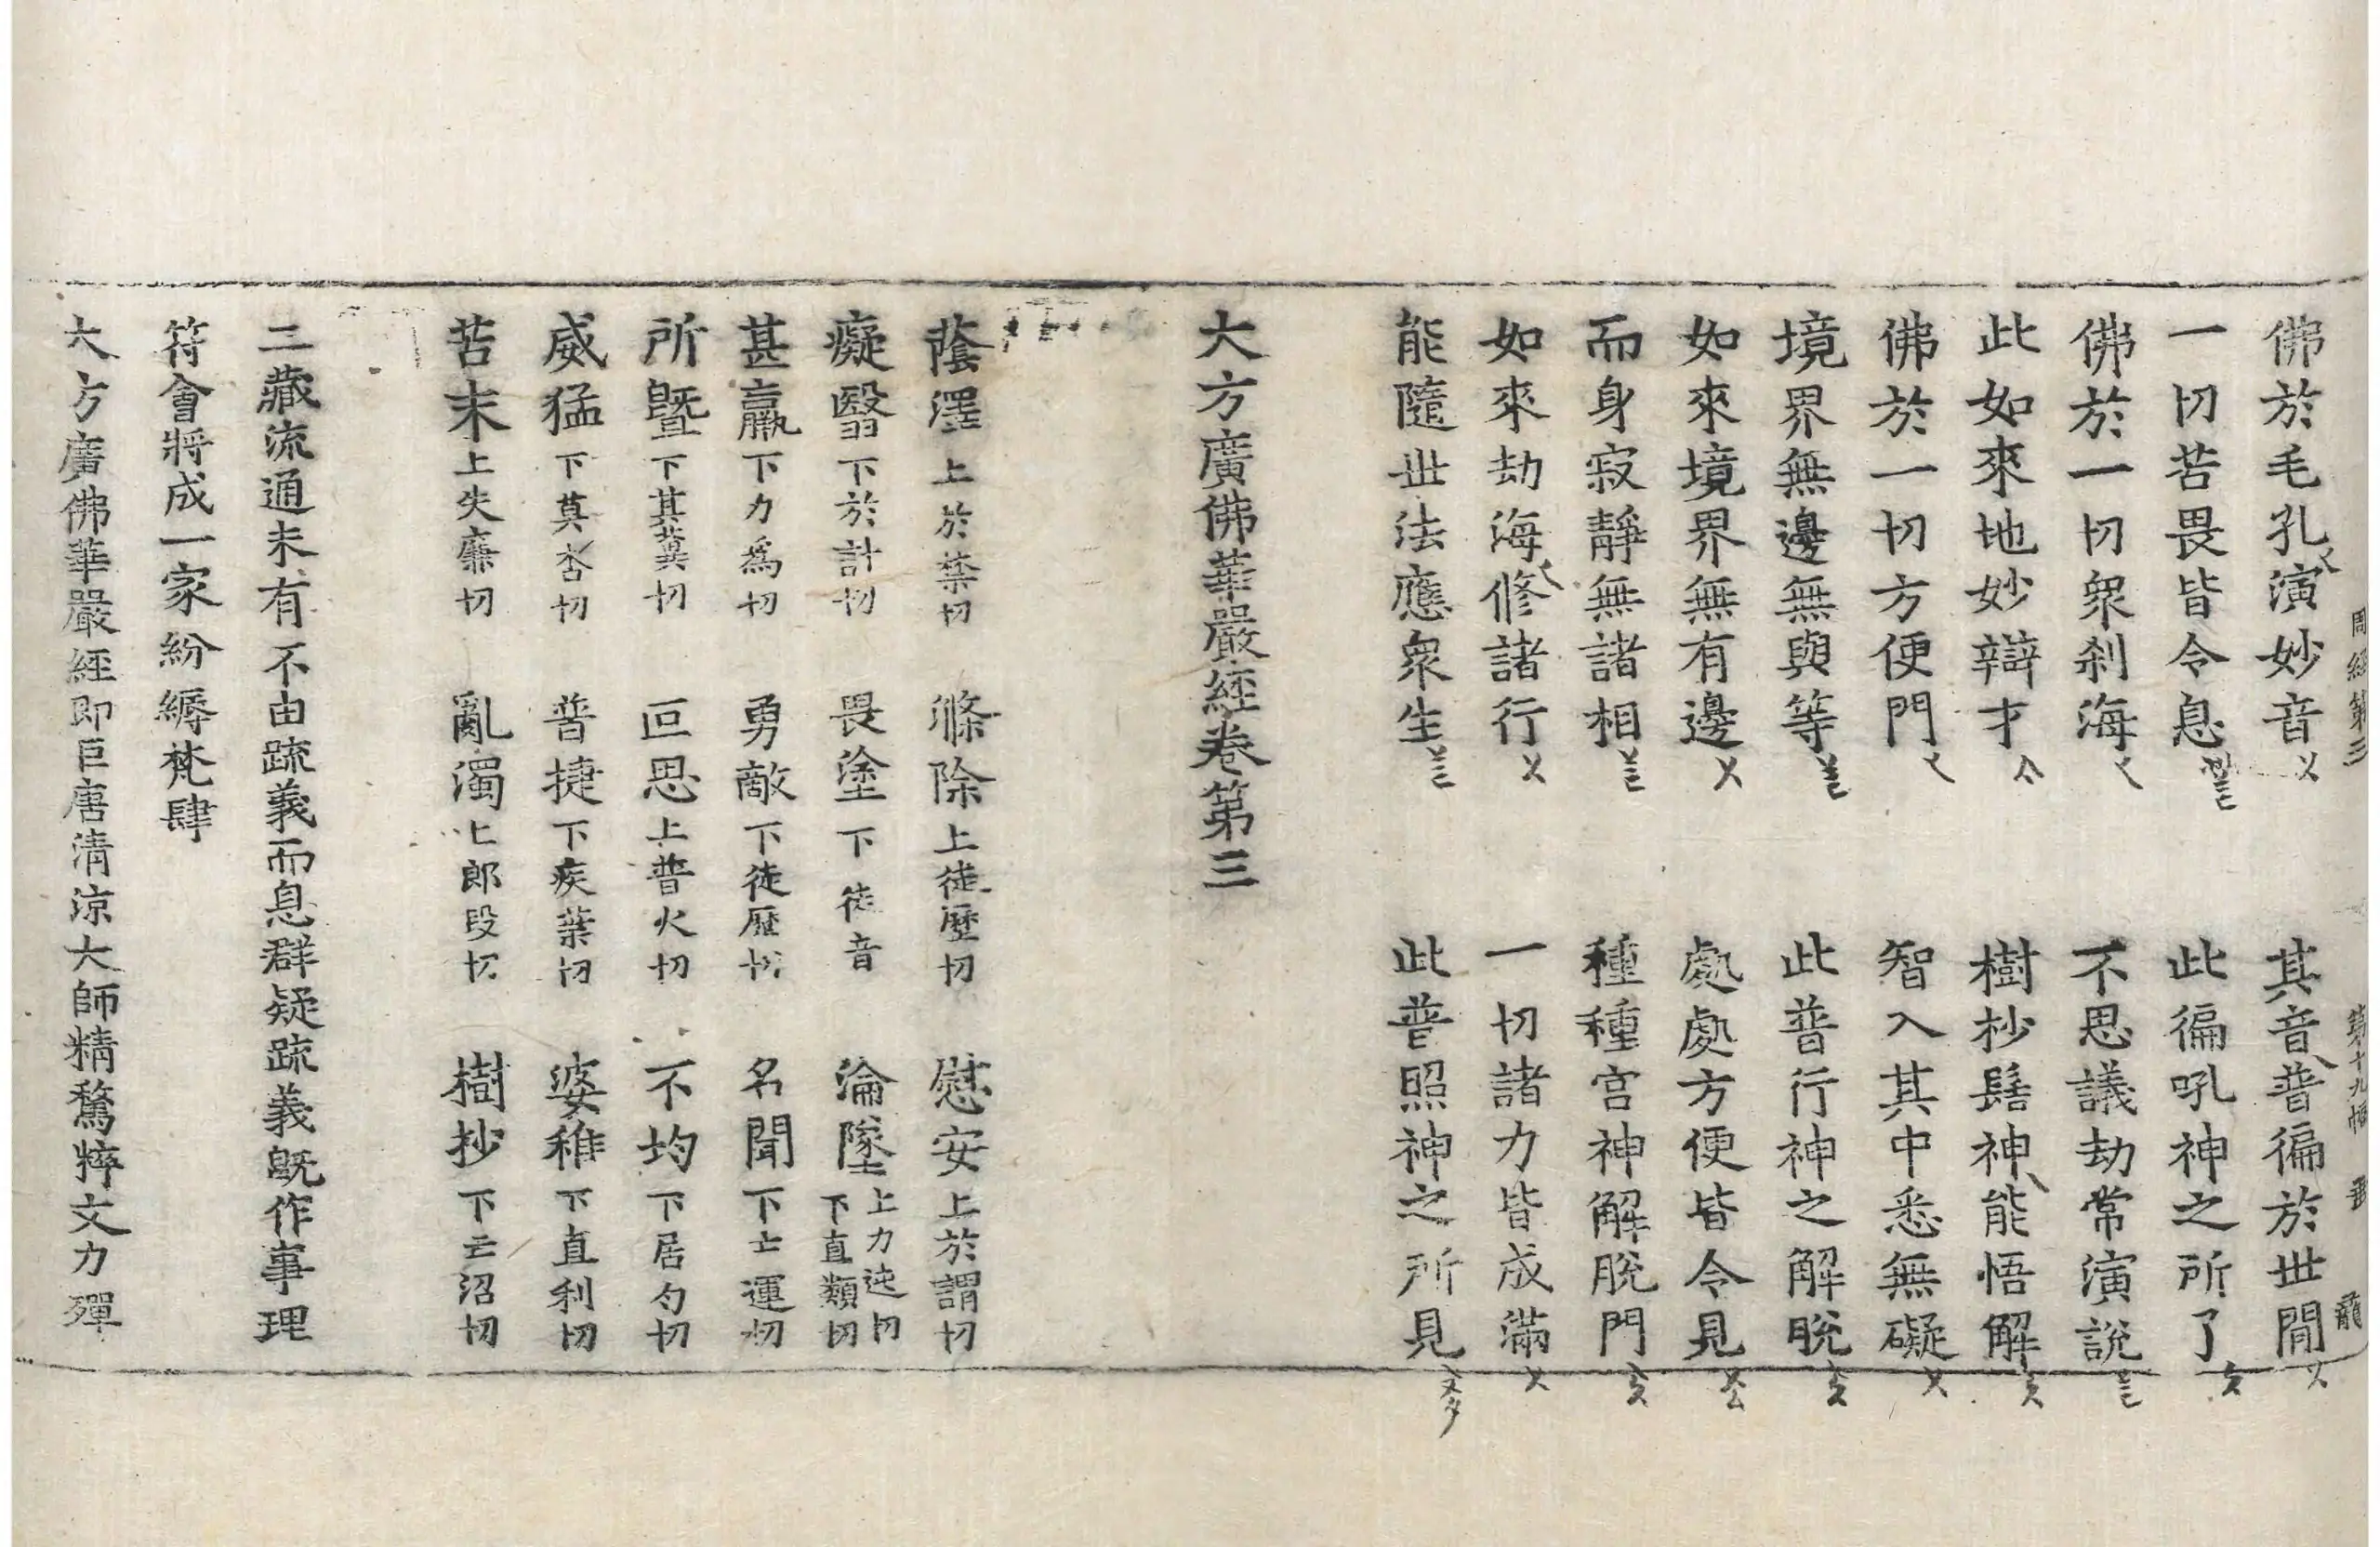 周經第三 第十九幅 龍
佛於毛孔演妙音 其音普徧於世間
一切苦畏皆令息 此徧吼神之所了
佛於一切衆刹海 不思議劫常演說
此如來地妙辯才 樹杪髻神能悟解
佛於一切方便門 智入其中悉無礙
境界無邊無與等 此普行神之解脫
如來境界無有邊 處處方便皆令見
而身寂靜無諸相 種種宮神解脫門
如來劫海修諸行 一切諸力皆成滿
能隨世法應衆生 此普照神之所見
大方廣佛華嚴經卷第三
蔭澤上於禁切 滌除上徒歷切 慰安上於謂切
癡翳下於計切 畏塗下徒音 淪墜上力迍切下直類切
甚羸下力爲切 勇敵下徒歷切 名聞下亡運切
所曁下其冀切 叵思上普火切 不均下居勻切
威猛下莫杏切 普捷下疾葉切 婆稚下直利切
苫末上失廉切 亂濁上郎段切 樹杪下亡沼切
三藏流通未有不由䟽義而息群疑䟽義旣作事理
符會將成一家紛縟梵肆
大方廣佛華嚴經即巨唐清涼大師精騖粹文力殫